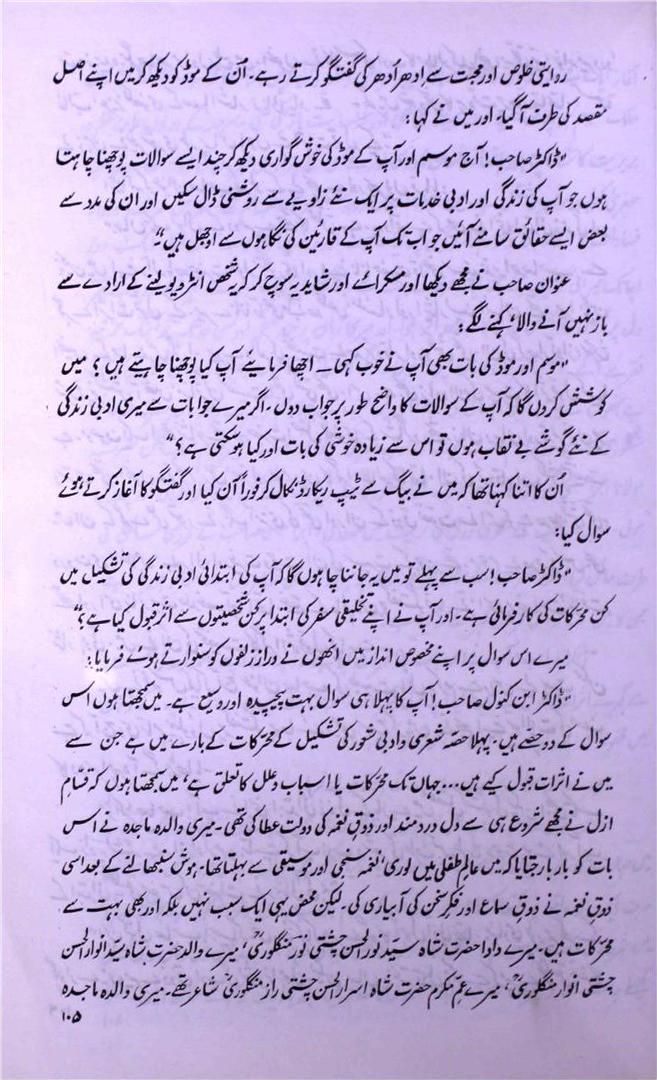 روایتی خلوص اور محبت سے اِدھر اُدھر کی گفتگو کرتے رہے۔ اُن کے موڈ کو دیکھ کر میں اپنے اصل
مقصد کی طرف آگیا۔ اور میں نے کہا:
"ڈاکٹر صاحب! آج موسم اور آپ کے موڈ کی خوش گواری دیکھ کر چند ایسے سوالات پوچھنا چاہتا
ہوں جو آپ کی زندگی اور ادبی خدمات پر ایک نئے زاویے سے روشنی ڈال سکیں اور ان کی مدد سے
بعض ایسے حقائق سامنے آئیں جو اب تک آپ کے قارئین کی نگاہوں سے اوجھل ہیں"
عنوان صاحب نے مجھے دیکھا اور مسکرائے اور شاید یہ سوچ کر کہ یہ شخص انٹرویو لینے کے ارادے سے
باز نہیں آنے والا، کہنے لگے:
"موسم اور موڈ کی بات بھی آپ نے خوب کہی۔ اچھا فرمائیے آپ کیا پوچھنا چاہتے ہیں؟ میں
کوشش کروں گا کہ آپ کے سوالات کا واضح طور پر جواب دوں۔ اگر میرے جوابات سے میری ادبی زندگی
کے نئے گوشے بے نقاب ہوں تو اس سے زیادہ خوشی کی بات اور کیا ہوسکتی ہے؟"
اُن کا اتنا کہنا تھا کہ میں نے بیگ سے ٹیپ ریکارڈ نکال کر فوراً آن کیا اور گفتگو کا آغاز کرتے ہوئے
سوال کیا:
"ڈاکٹر صاحب! سب سے پہلے تو میں یہ جاننا چاہوں گا کہ آپ کی ابتدائی ادبی زندگی کی تشکیل میں
کن محرکات کی کارفرمائی ہے۔ اور آپ نے اپنے تخلیقی سفر کی ابتدا پر کن شخصیتوں سے اثر قبول کیا ہے؟"
میرے اس سوال پر اپنے مخصوص انداز میں انھوں نے دراز زلفوں کو سنوارتے ہوئے فرمایا:
"ڈاکٹر ابن کنول صاحب! آپ کا پہلا ہی سوال بہت پیچیدہ اور وسیع ہے۔ میں سمجھتا ہوں اس
سوال کے دو حصّے ہیں۔ پہلا حصّہ شعری و ادبی شعور کی تشکیل کے محرکات کے بارے میں ہے جن سے
میں نے اثرات قبول کیے ہیں... جہاں تک محرکات یا اسباب و علل کا تعلق ہے، میں سمجھتا ہوں کہ قسّامِ
ازل نے مجھے شروع ہی سے دل دردمند اور ذوقِ نغمہ کی دولت عطا کی تھی۔ میری والدہ ماجدہ نے اس
بات کو بار بار جتایا کہ میں عالمِ طفلی میں لوری، نغمہ سنجی اور موسیقی سے بہلتا تھا۔ ہوش سنبھالنے کے بعد اسی
ذوقِ نغمہ نے ذوقِ سماع اور فکرِ سخن کی آبیاری کی۔ لیکن محض یہی ایک سبب نہیں بلکہ اور بھی بہت سے
محرکات ہیں۔ میرے دادا حضرت شاہ سید نور الحسن چشتی نور منگلوریؒ، میرے والد حضرت شاہ سیّد انوار الحسن
چشتی انوار منگلوریؒ، میرے عمِ مکرم حضرت شاہ اسرار الحسن چشتی راز منگلوریؒ شاعر تھے۔ میری والدہ ماجدہ
۱۰۵